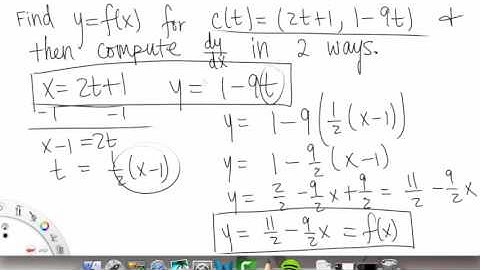 Find y=f(x) for c(t)=(2t+1, 1-9t) &
then compute dy/dx in 2 ways.
x=2t+1 y=1-9t
-1 -1
x-1=2t
t = 1/2(x-1)
y= 1-9(1/2(x-1))
y= 1-9/2(x-1)
y= 2/2-9/2x+9/2=11/2-9/2x
y= 11/2-9/2x=f(x)